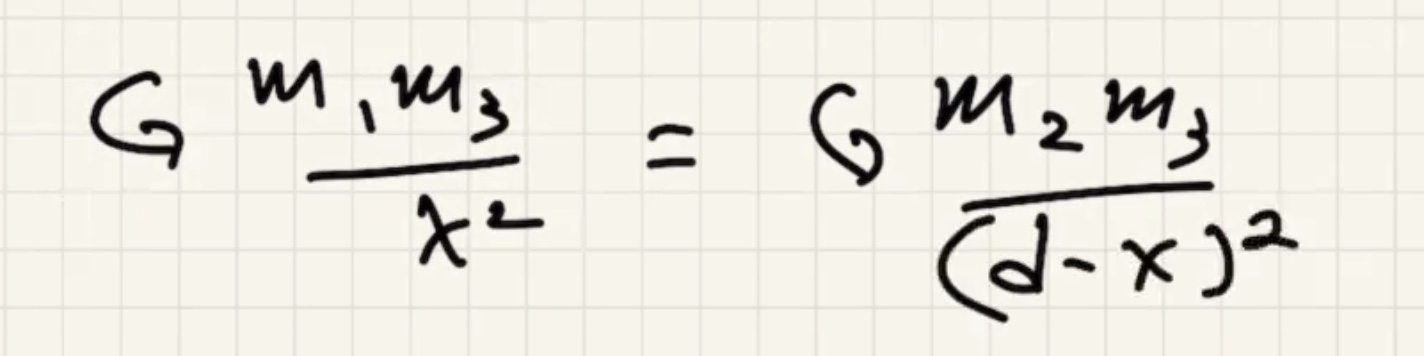 G \frac{m_1 m_3}{x^2} = G \frac{m_2 m_3}{(d-x)^2}